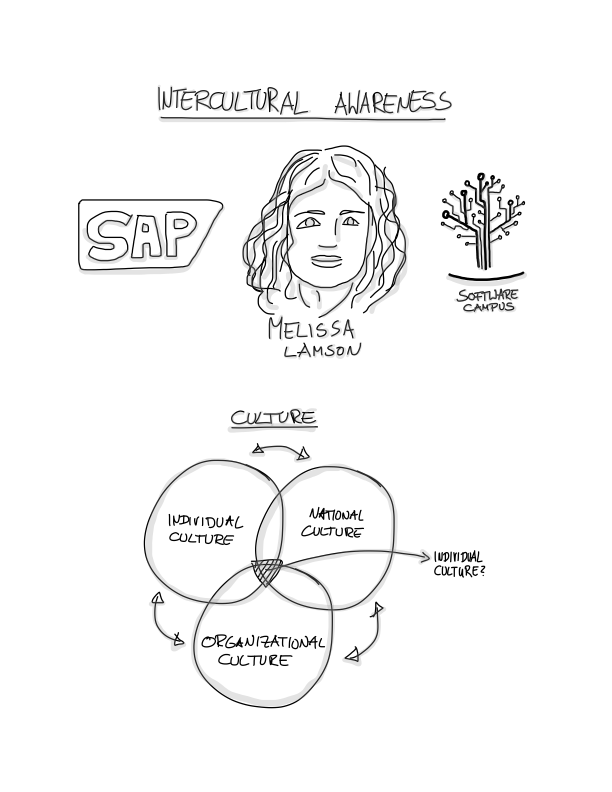 INTERCULTURAL AWARENESS
SAP
MELISSA
LAMSON
SOFTWARE
CAMPUS
CULTURE
INDIVIDUAL
CULTURE
NATIONAL
CULTURE
INDIVIDUAL
CULTURE?
ORGANIZATIONAL
CULTURE